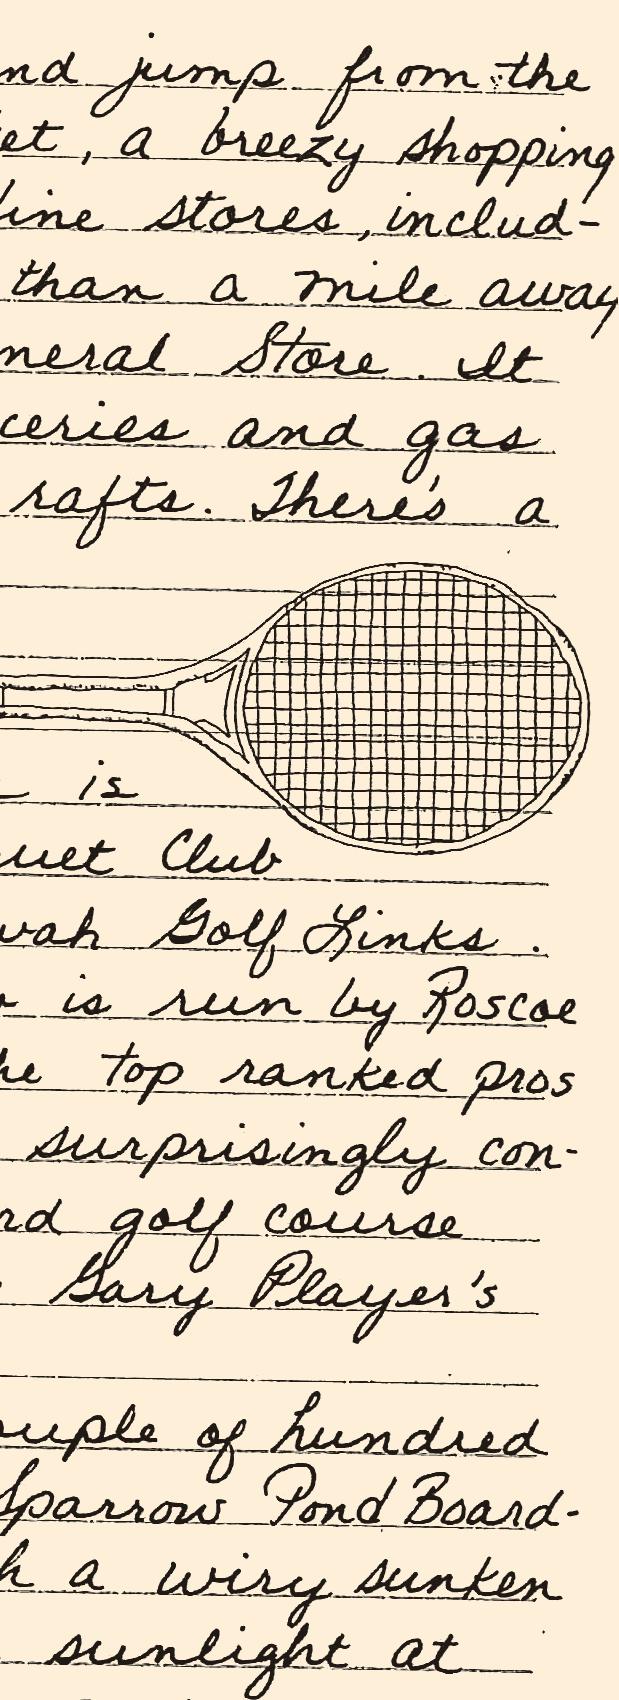 nd jump from the
et, a breezy shopping
line stores, includ-
than a mile away
neral Store. It
ceries and gas
rafts. There's a
is
uet Club
wah Golf Links.
is run by Roscoe
he top ranked pros
surprisingly con-
rd golf course
Gary Player's
ouple of hundred
Sparrow Pond Board-
h a wiry sunken
sunlight at